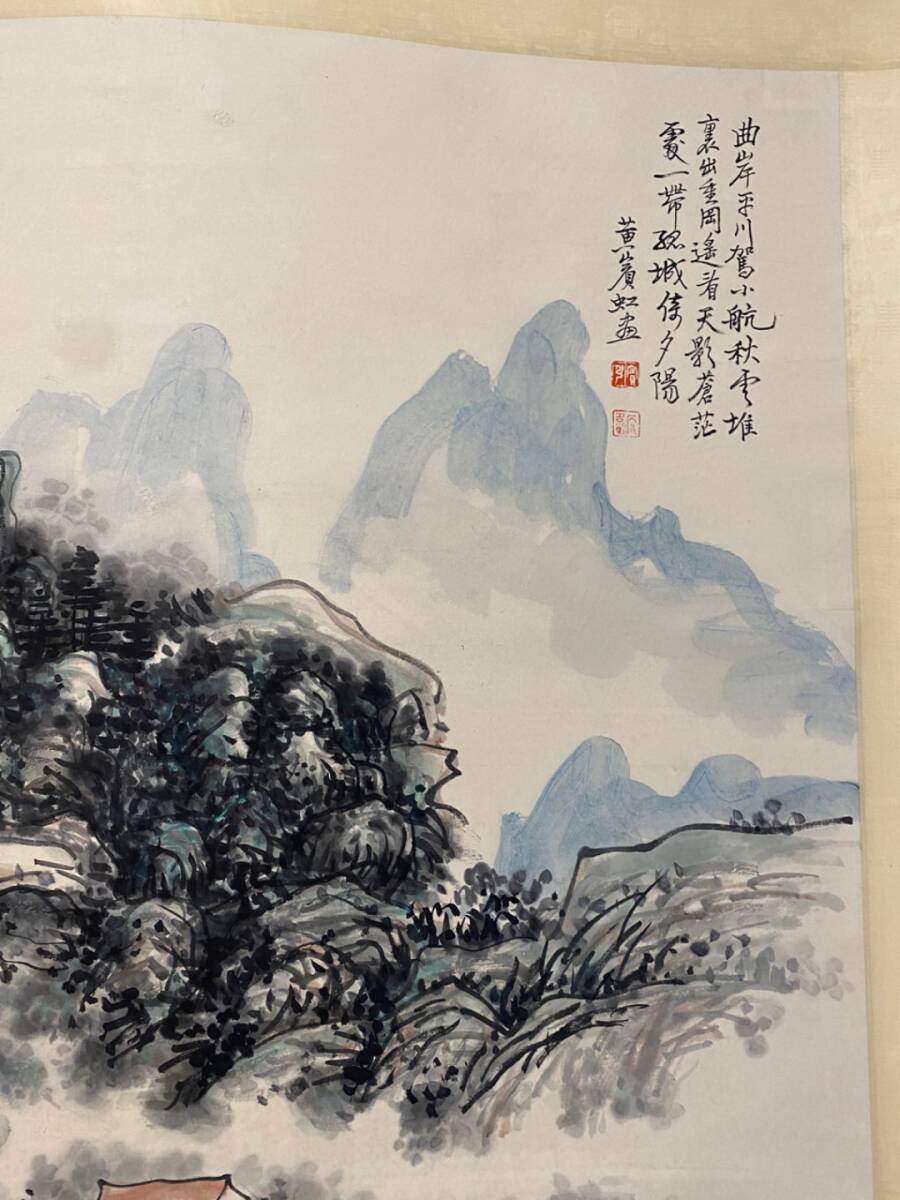 曲岸平川駕小航秋雲堆
裏出重岡遙看天影蒼茫
處一帶孤城倚夕陽
黃賓虹畫